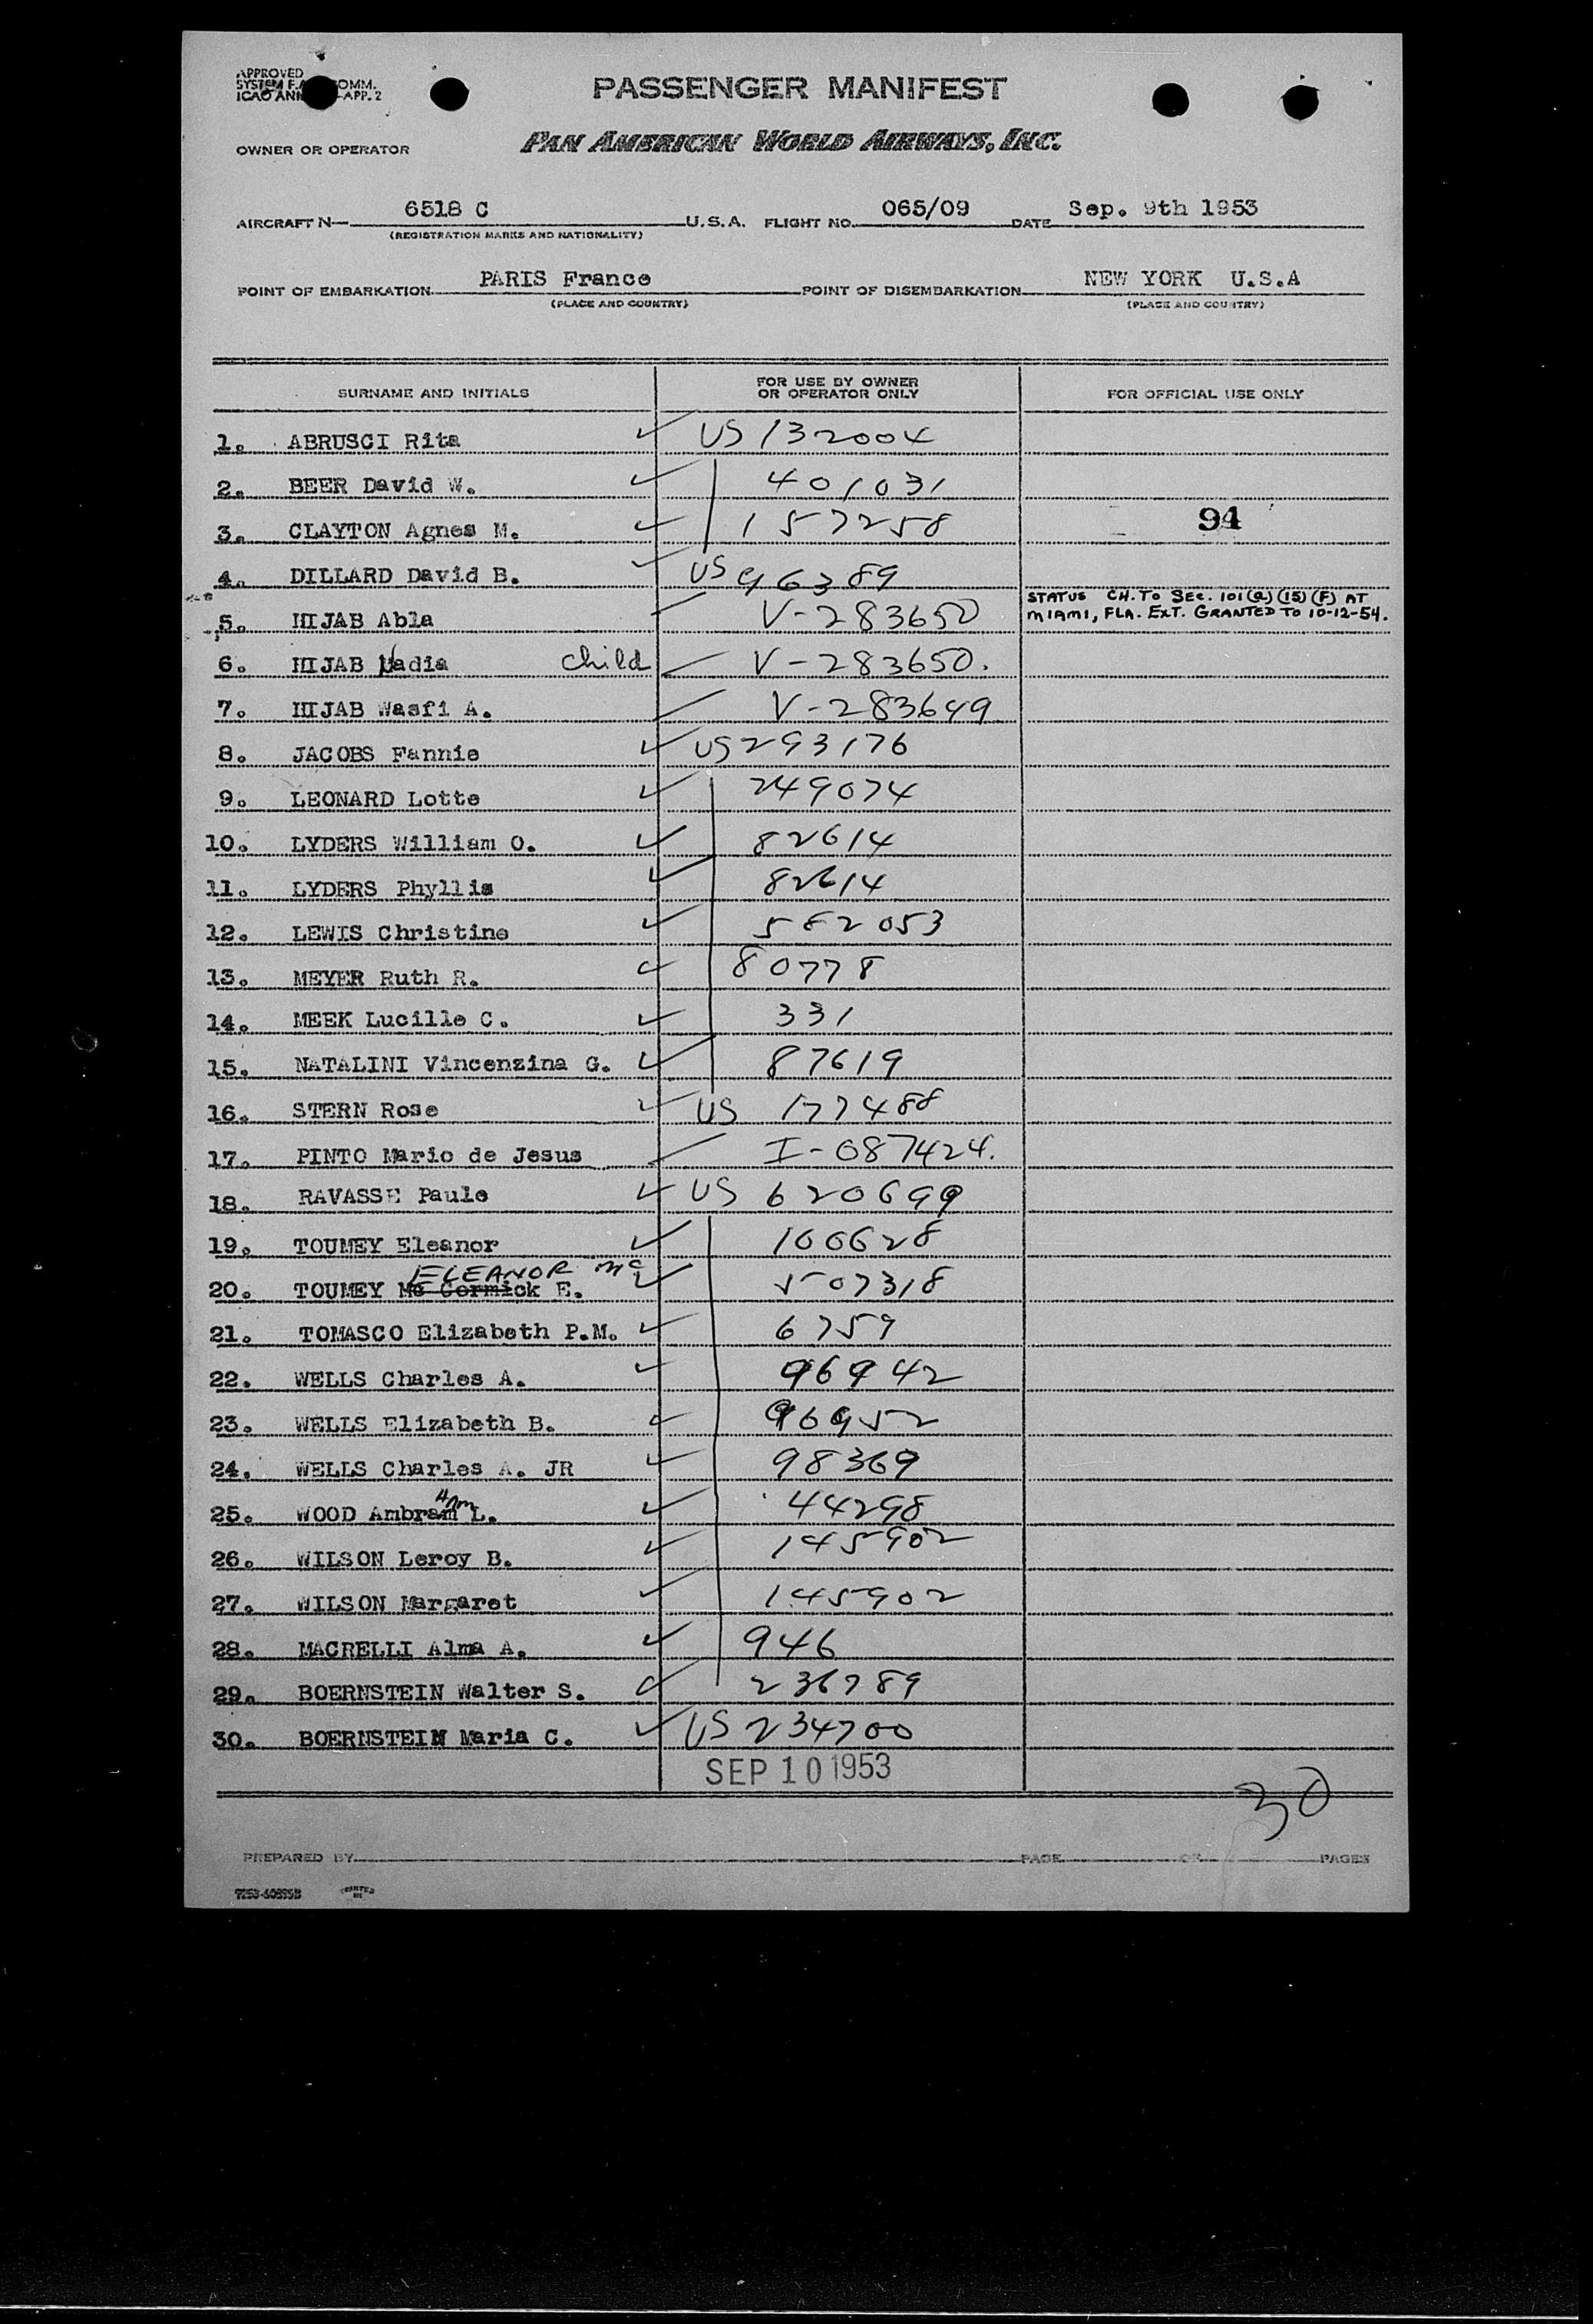 APPROVED
SYSTEM F.A. COMM.
ICAO ANN -APP. 2
PASSENGER MANIFEST
OWNER OR OPERATOR PAN AMERICAN WORLD AIRWAYS, INC.
AIRCRAFT N— 6518 C U.S.A. FLIGHT NO. 065/09 DATE Sep. 9th 1953
(REGISTRATION MARKS AND NATIONALITY)
POINT OF EMBARKATION PARIS France POINT OF DISEMBARKATION NEW YORK U.S.A
(PLACE AND COUNTRY) (PLACE AND COUNTRY)
SURNAME AND INITIALS FOR USE BY OWNER OR OPERATOR ONLY FOR OFFICIAL USE ONLY
1. ABRUSCI Rita ✓ US 132004
2. BEER David W. ✓ 401031
3. CLAYTON Agnes M. ✓ 157258 94
4. DILLARD David B. ✓ US 96389
5. HIJAB Abla V-283650 STATUS CH. TO SEC. 101(a)(15)(F) AT
MIAMI, FLA. EXT. GRANTED TO 10-12-54.
6. HIJAB Nadia child V-283650.
7. HIJAB Wasfi A. V-283649
8. JACOBS Fannie ✓ US 293176
9. LEONARD Lotte ✓ 249074
10. LYDERS William O. ✓ 82614
11. LYDERS Phyllis ✓ 82614
12. LEWIS Christine ✓ 582053
13. MEYER Ruth R. ✓ 80778
14. MEEK Lucille C. ✓ 331
15. NATALINI Vincenzina G. ✓ 87619
16. STERN Rose ✓ US 177488
17. PINTO Mario de Jesus I-087424.
18. RAVASSE Paule ✓ US 620699
19. TOUMEY Eleanor ✓ 100628
ELEANOR Mc
20. TOUMEY Mc Cormick E. ✓ 507318
21. TOMASCO Elizabeth P.M. ✓ 6759
22. WELLS Charles A. ✓ 96942
23. WELLS Elizabeth B. ✓ 96952
24. WELLS Charles A. JR ✓ 98369
25. WOOD Ambram L. ✓ 44298
26. WILSON Leroy B. ✓ 145902
27. WILSON Margaret ✓ 145902
28. MACRELLI Alma A. ✓ 946
29. BOERNSTEIN Walter S. ✓ 236789
30. BOERNSTEIN Maria C. ✓ US 234700
SEP 10 1953
30
PREPARED BY PAGE OF PAGES